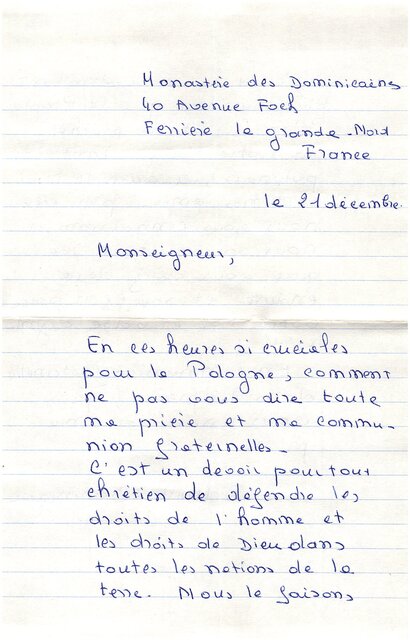 Monastère des Dominicaines
40 Avenue Foch
Ferrière la grande - Nord
France
le 21 décembre.
Monseigneur,
En ces heures si cruciales
pour la Pologne, comment
ne pas vous dire toute
ma prière et ma commu-
nion fraternelles.
C'est un devoir pour tout
chrétien de défendre les
droits de l'homme et
les droits de Dieu dans
toutes les nations de la
terre. Nous le faisons